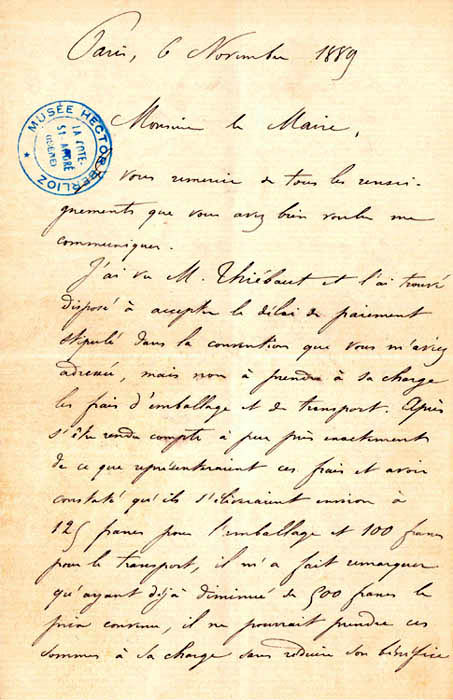 Paris, 6 Novembre 1889
Monsieur le Maire,
MUSÉE HECTOR BERLIOZ
LA CÔTE-
ST-ANDRÉ
(ISÈRE)
Vous remercie de tous les rensei-
gnements que vous avez bien voulu me
communiquer.
J'ai vu M. Thiébaut et l'ai trouvé
disposé à accepter le délai de paiement
stipulé dans la convention que vous m'avez
adressée, mais non à prendre à sa charge
les frais d'emballage et de transport. Après
s'être rendu compte à peu près exactement
de ce que représenteraient ces frais et avoir
constaté qu'ils s'élèveraient environ à
125 francs pour l'emballage et 100 francs
pour le transport, il m'a fait remarquer
qu'ayant déjà diminué de 500 francs le
prix convenu, il ne pourrait prendre ces
sommes à sa charge sans réduire son bénéfice